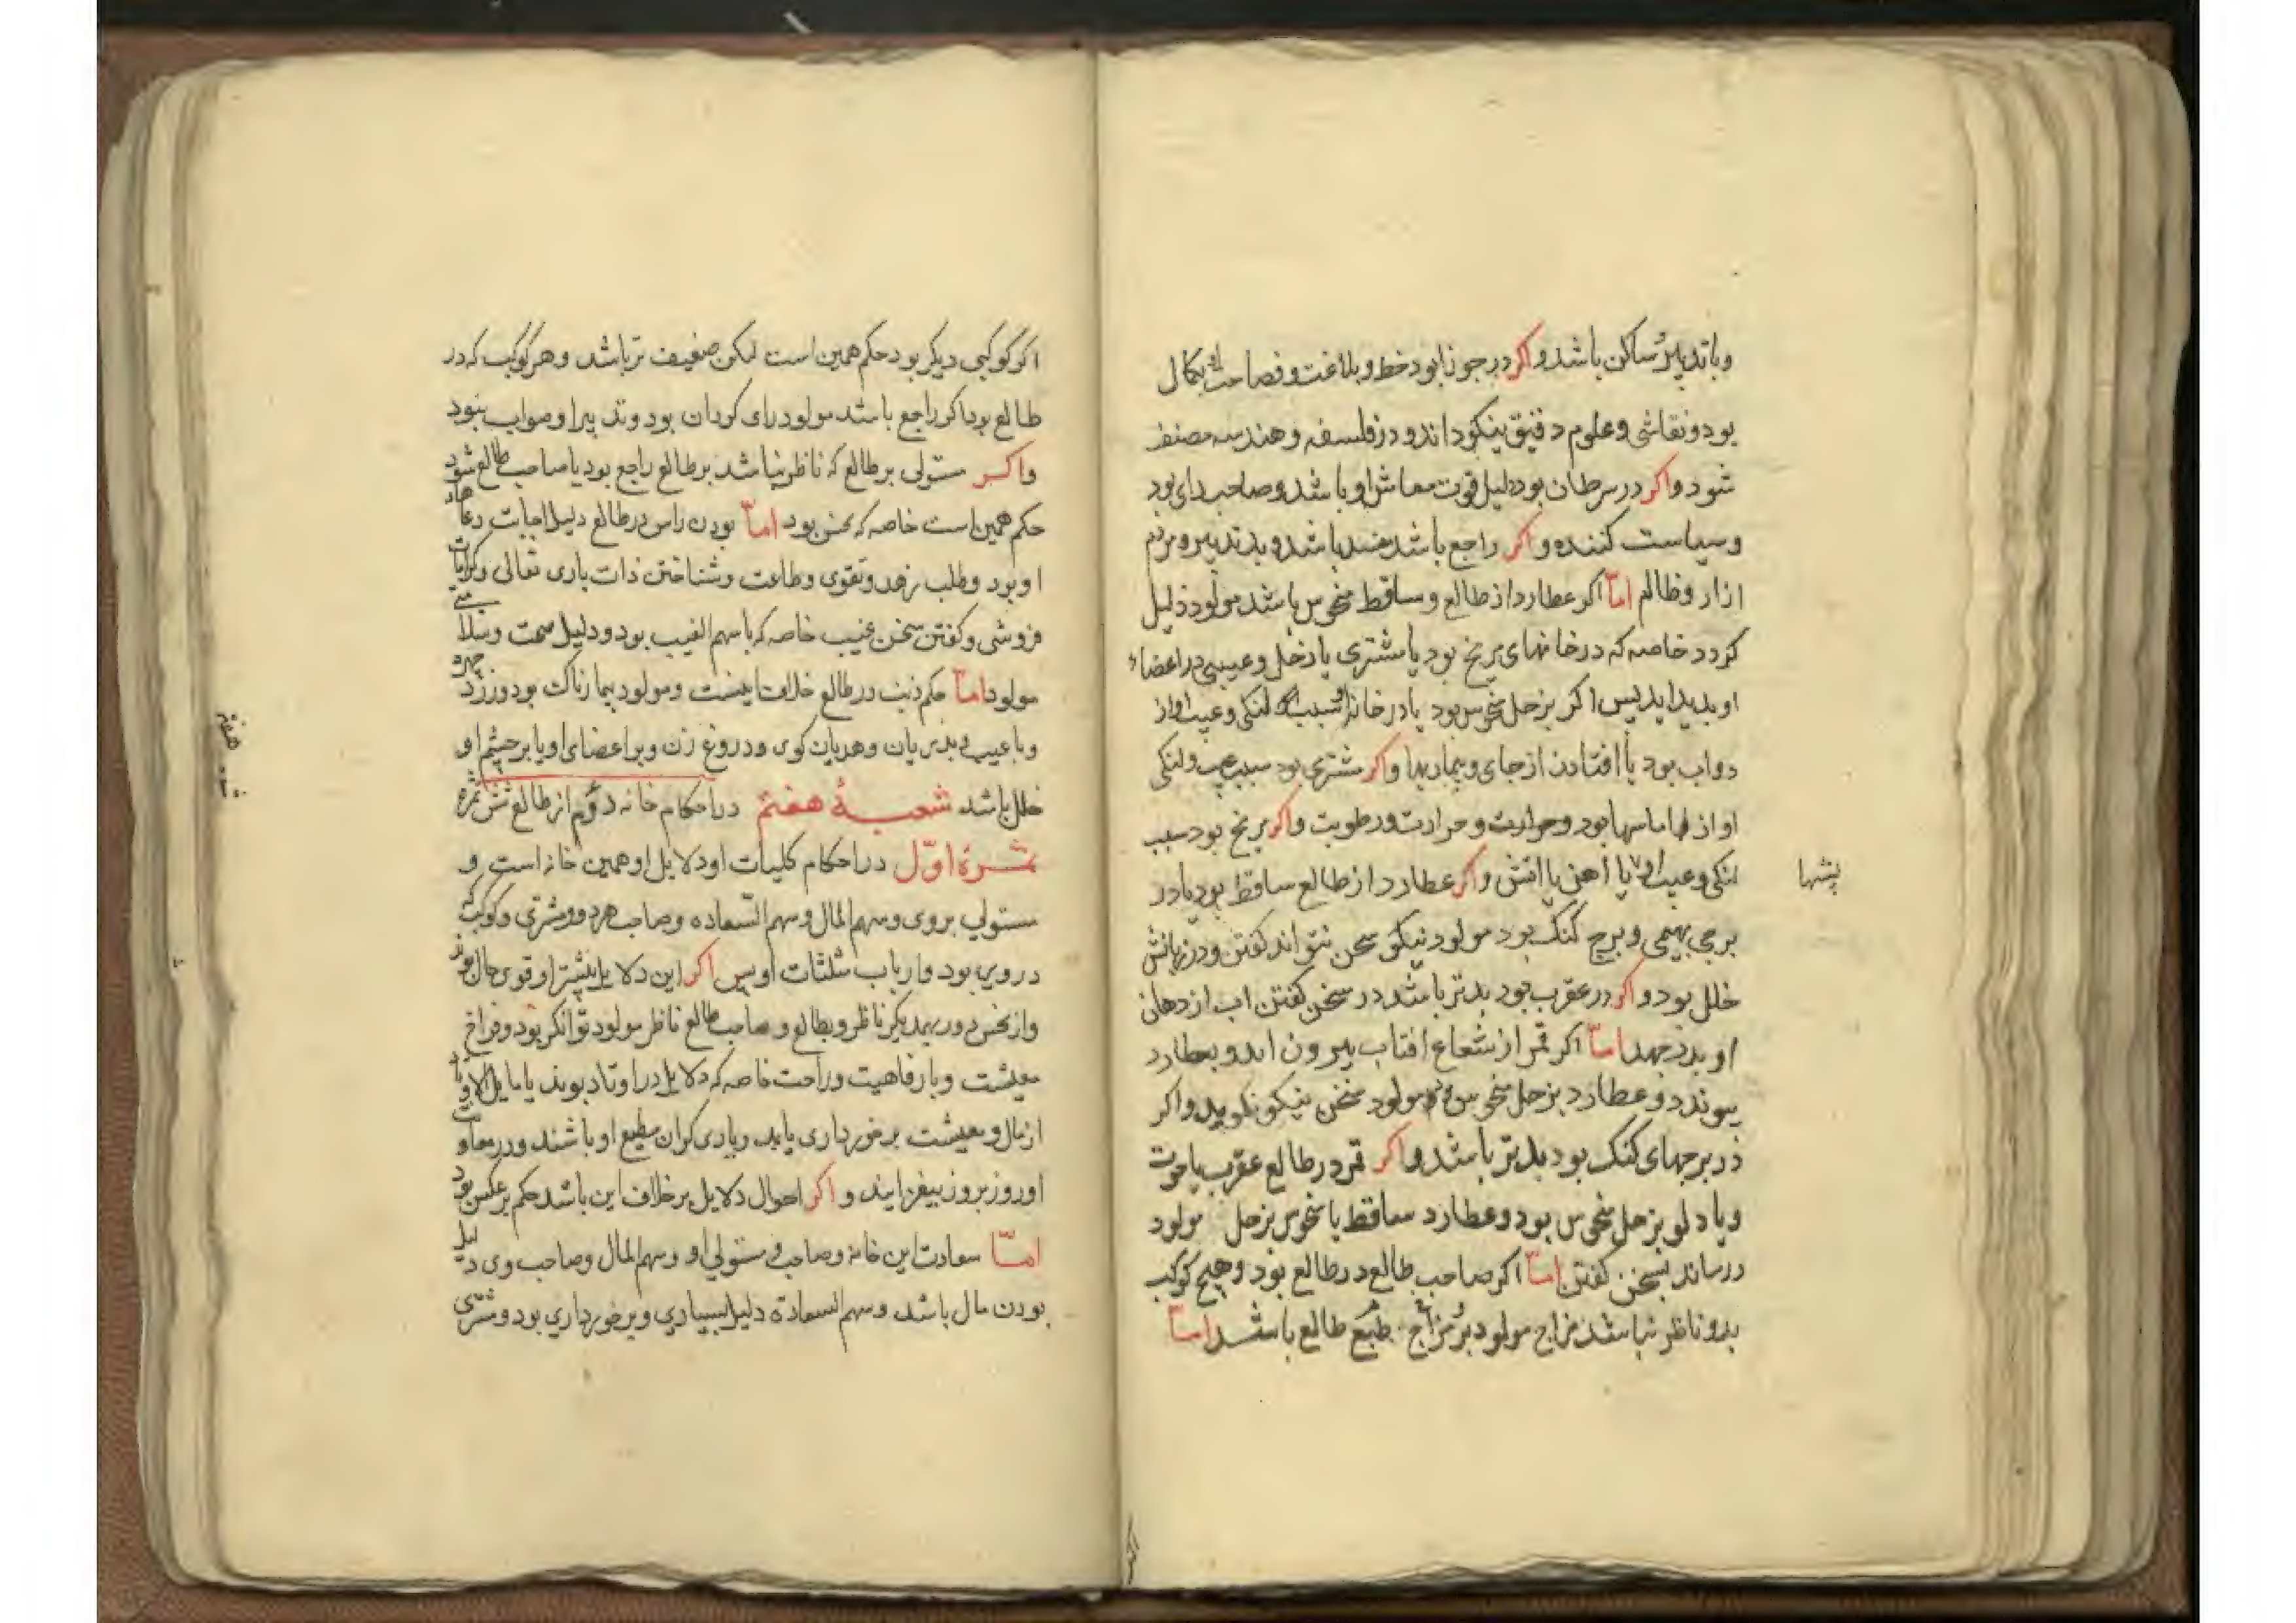 و با تدبیر ساکن باشد و اکر در جوزا بود خط و بلاغت و فصاحت او بکمال
بود و نقاشی و علوم دقیق نیکو داند و در فلسفه و هندسه مصنف
شود و اکر در سرطان بود دلیل قوت معاش او باشد و صاحب رای بود
و سیاست کننده و اکر راجع باشد مفسد باشد و بد تدبیر و مردم
ازار و ظالم اما اکر عطارد از طالع و ساقط منحوس باشد مولود ذلیل
کردد خاصه که در خانهای مریخ بود یا مشتری یا زحل و عیبی در اعضاء
او پدید اید پس اکر بزحل منحوس بود یا در خانه او سبب لنکی و عیب او از
دواب بود یا افتادن از جای و بیماریها و اکر مشتری بود سبب عیب و لنکی
او از اماسها بود و حرارت و رطوبت و اکر مریخ بود سبب
لنکی و عیب او یا اهن یا اتش و اکر عطارد از طالع ساقط بود یا در
پشها
برجی بهیمی و برج کنک بود مولود نیکو سخن نتواند کفتن و در زبانش
خلل بود و اکر در عقرب بود بدتر باشد در سخن کفتن اب از دهان
او بدر جهد اما اکر قمر از شعاع افتاب بیرون اید و بعطارد
پیوندد و عطارد بزحل منحوس بود مولود سخن نیکو نکوید و اکر
در برجهای کنک بود بدتر باشد و اکر قمر در طالع عقرب یا حوت
و یا دلو بزحل منحوس بود و عطارد ساقط یا منحوس بزحل مولود
درماند بسخن کفتن اما اکر صاحب طالع در طالع بود و هیچ کوکب
بدو ناظر نباشد مزاج مولود بر مزاج طبع طالع باشد اما
اکر کوکبی دیکر بود حکم همین است لیکن ضعیف تر باشد و هر کوکب که در
طالع بود اکر راجع باشد مولود رای کردان بود و تدبیر او صواب نبود
واکر مستولی بر طالع که ناظر نباشد بر طالع راجع بود یا صاحب طالع شود
حکم همین است خاصه که نحس بود اما بودن راس در طالع دلیل اجابت دعاهاء
او بود و طلب زهد و تقوی و طاعت و شناختن ذات باری تعالی و کرامات
فروشی و کفتن سخن غیب خاصه که با سهم الغیب بود و دلیل صحت و سلامتی
مولود اما حکم ذنب در طالع خلاف اینست و مولود بیمارناک بود و زرد چهره
و با عیب و بد زبان و هدیان کوی و دروغ زن و بر اعضای او یا بر چشم او
خلل باشد شعبهٔ هفتم در احکام خانه دوم از طالع شش ثمره
ثمرهٔ اوّل در احکام کلیات او دلایل او همین خانه است و
مستولی بر وی و سهم المال و سهم السّعاده و صاحب هر دو و مشتری و کوکب که
در وی بود و ارباب مثلثات او پس اکر این دلایل بیشتر او قوی حال بوند
و از نحس دور بیکدیکر ناظر و بطالع و صاحب طالع ناظر مولود توانکر بود و فراخ
معیشت و با رفاهیت و راحت خاصه که دلایل در اوتاد بوند یا مایل الاوتاد
از مال و معیشت برخورداری یابد و یاری کران مطیع او باشند و در معاونت
او روز بروز بیفزایند و اکر احوال دلایل بر خلاف این باشد حکم بر عکس بود
امّا سعادت این خانه و صاحب و مستولی او و سهم المال و صاحب وی دلیل
بودن مال باشد و سهم السعاده دلیل بسیاری و برخورداری بود و مشتری